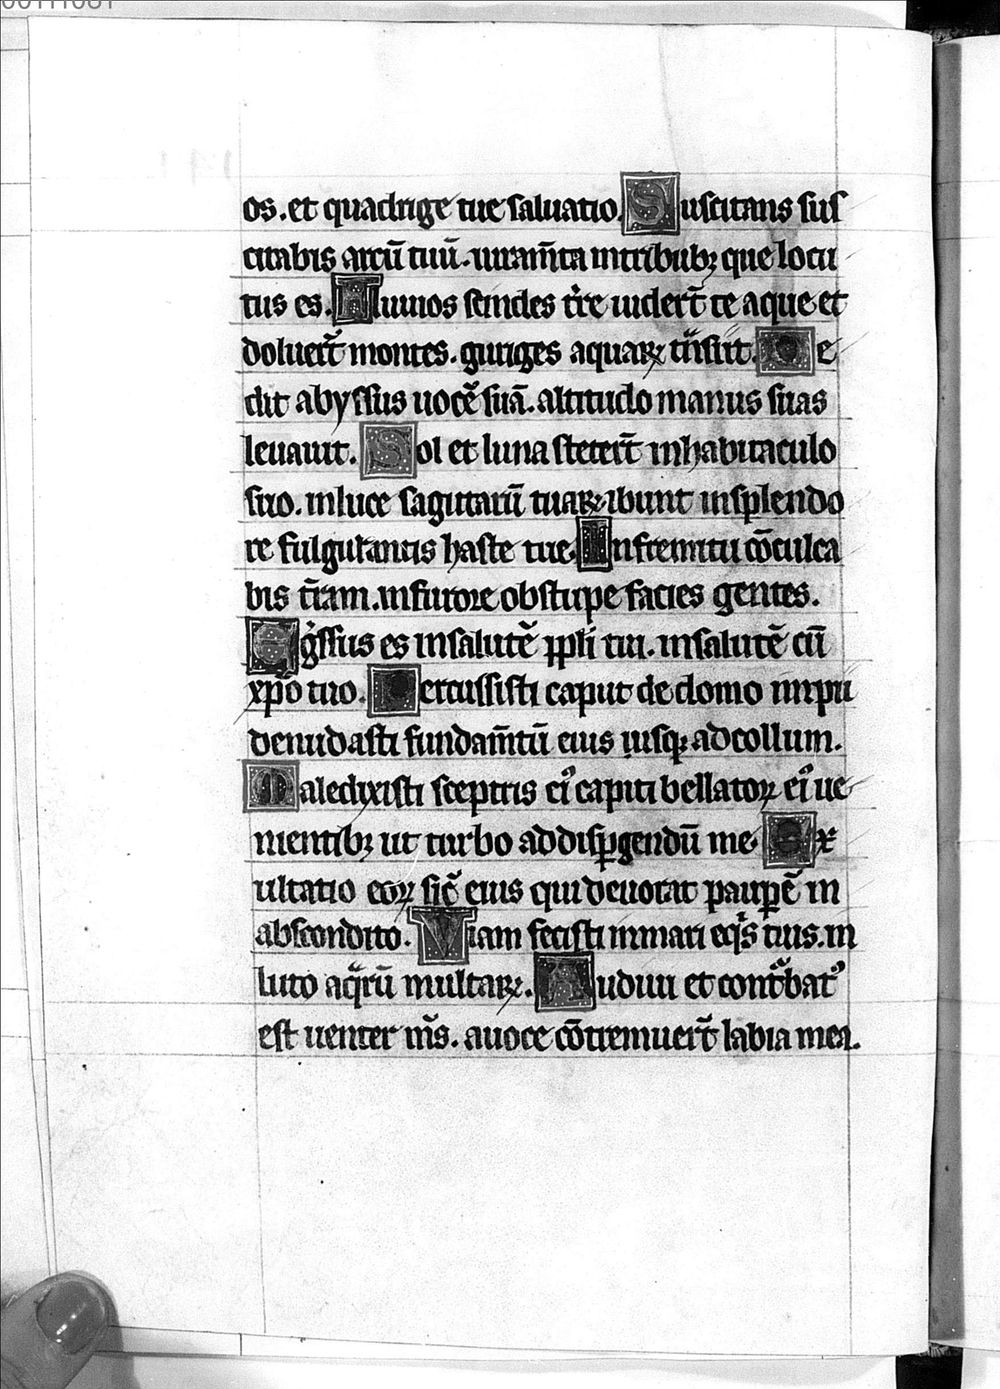 os. et quadrige tue saluatio. Suscitans sus
citabis arcū tuū. iuram̄ta tribubꝫ que locu
tus es. Fluuios scindes tr̄re uidert̄ te aque et
doluert̄ montes. gurges aquaꝝ trāsiit. De
dit abyssus uocē suā. altitudo manus suas
leuauit. Sol et luna stetert̄ in habitaculo
suo. in luce sagittarū tuaꝝ ibunt in splendo
re fulgurantis haste tue. In fremitu cōculca
bis tr̄ram. in furore obstupe facies gentes.
Egr̄ssus es in salutē ppl̄i tui. in salutē cū
xp̄o tuo. Percussisti caput de domo impii
denudasti fundam̄tū eius usqꝫ ad collum.
Maledixisti sceptris eiꝰ capiti bellatoꝝ eiꝰ ue
nientibꝫ ut turbo ad disꝑgendū me. Ex
ultatio eoꝝ sic̄ eius qui deuorat pauꝑē in
abscondito. Viam fecisti in mari eq̄s tuis. in
luto aq̄rū multaꝝ. Audiui et contͣbatꝰ
est uenter mꝰs. a uoce cōtremuert̄ labia mea.